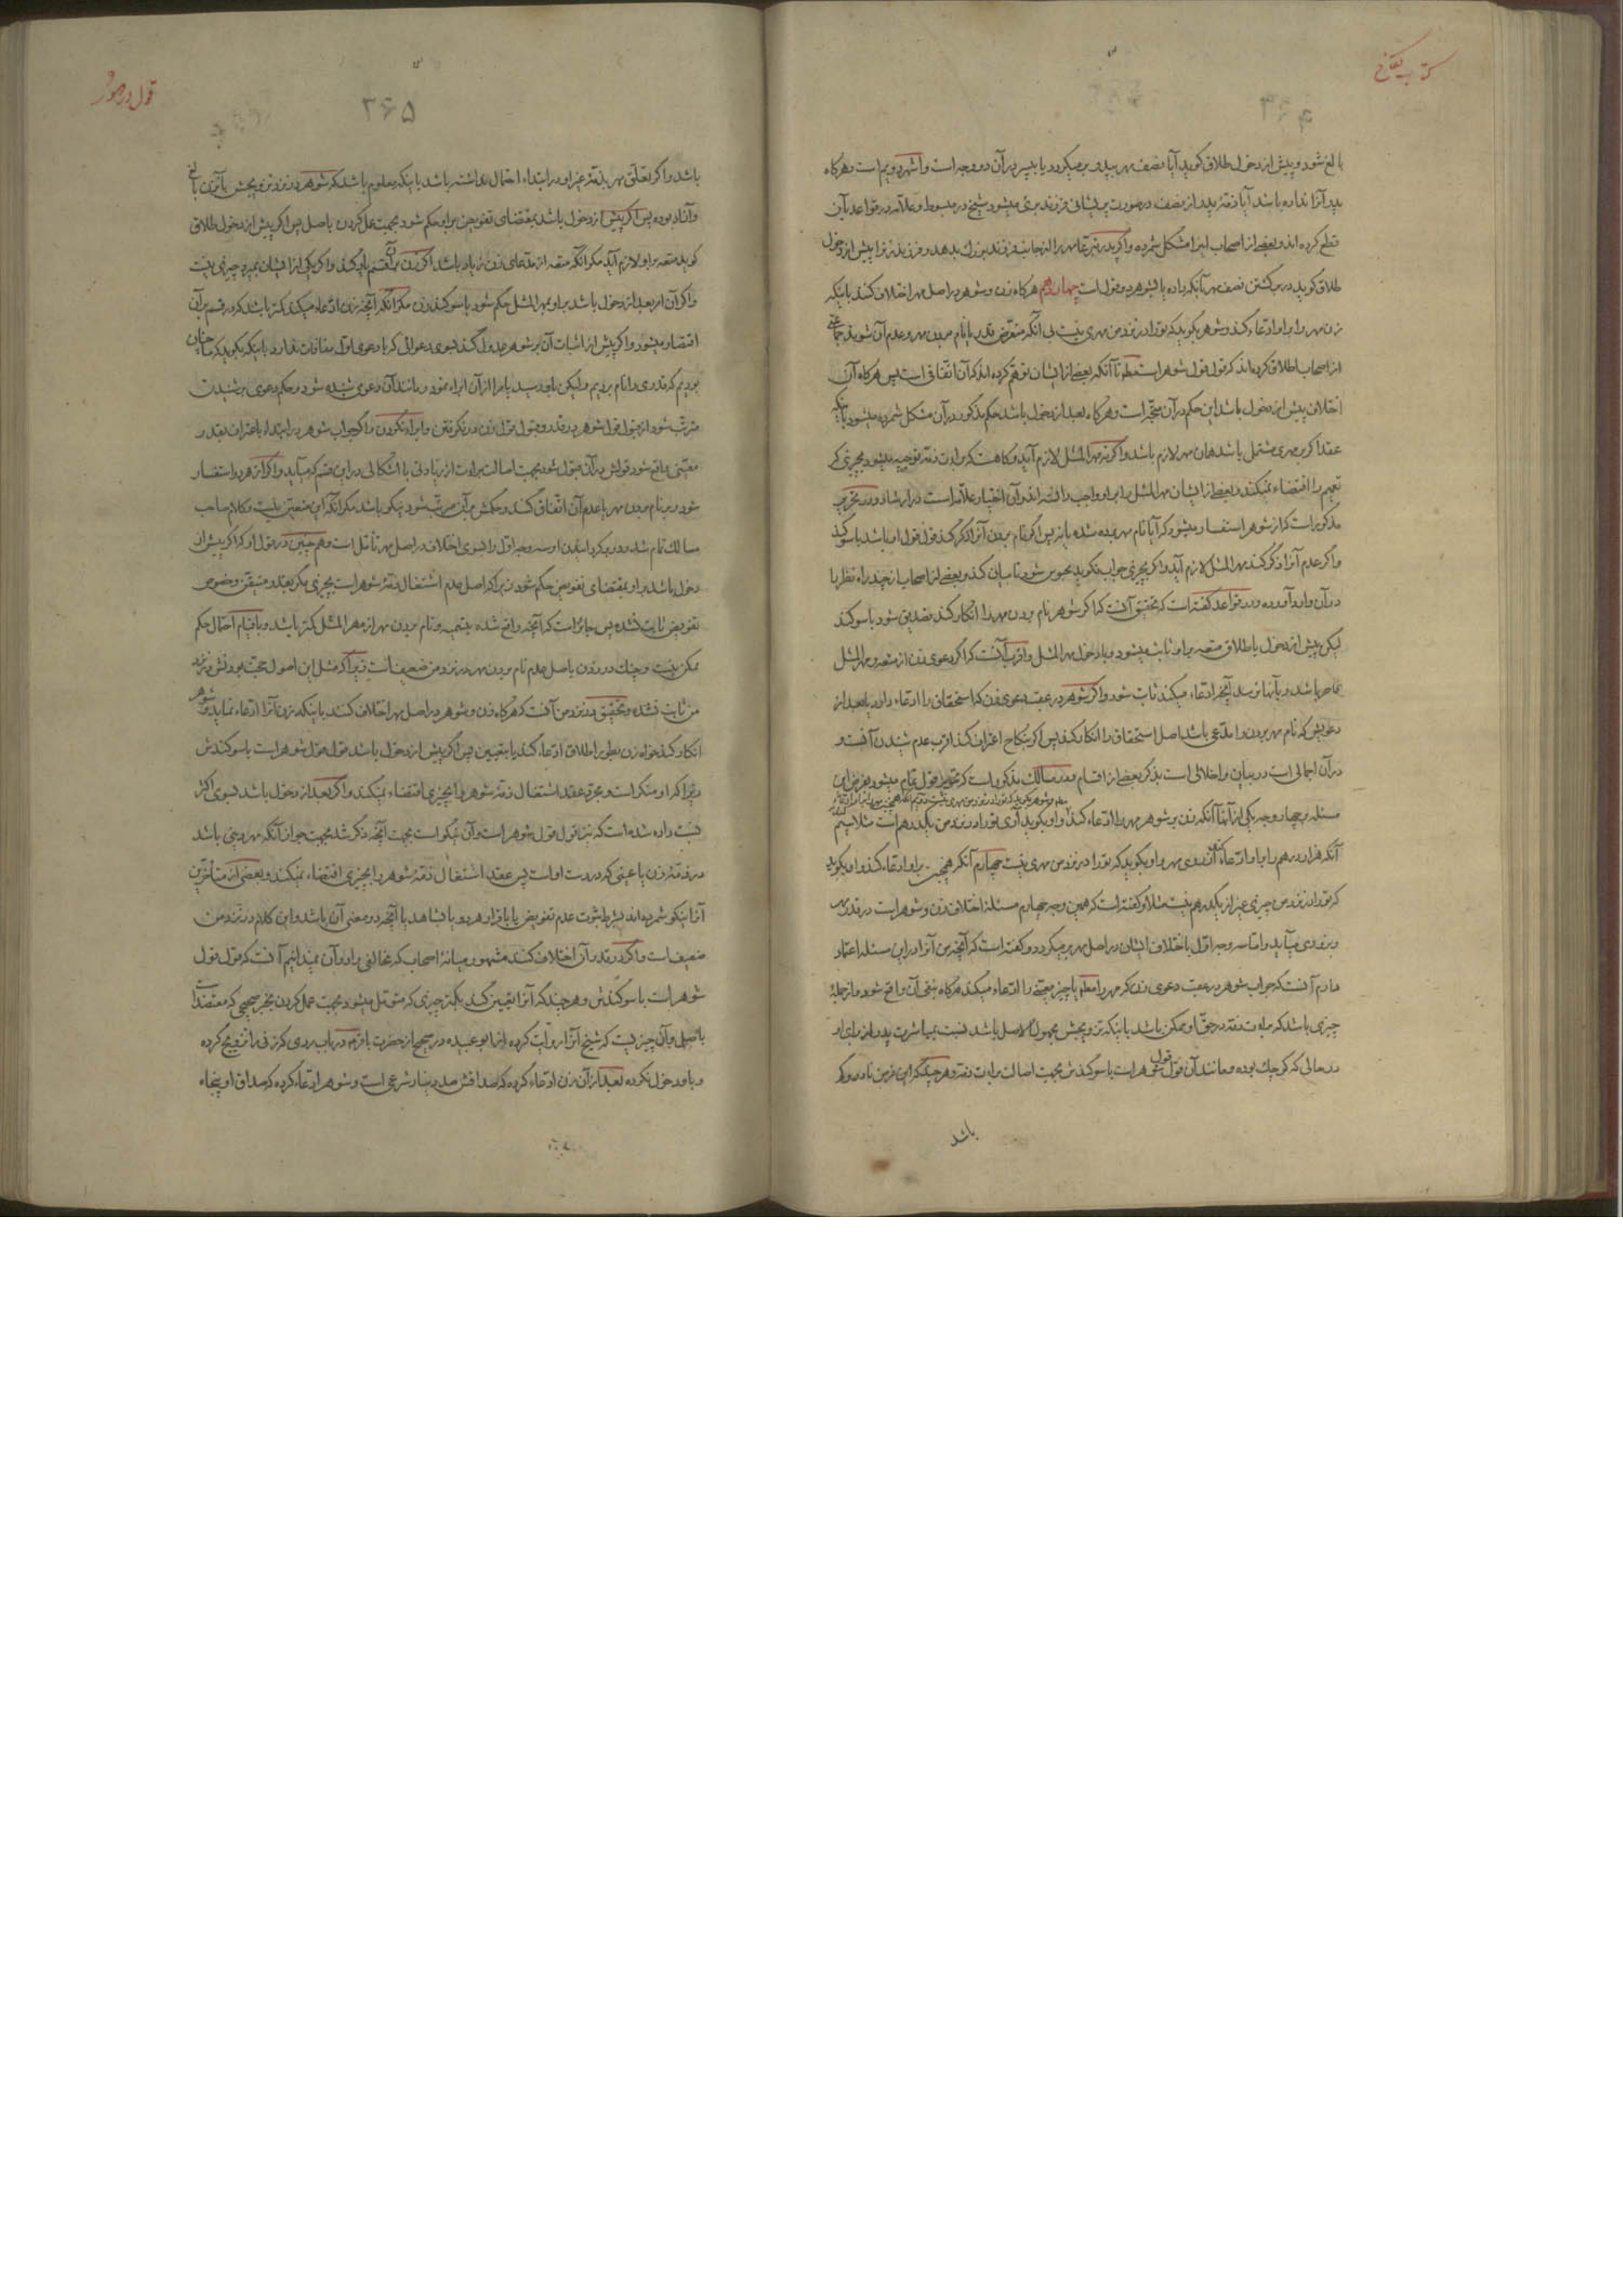 کتاب نکاح
۳۶۴
بالغ شود و پیش از دخول طلاق گوید آیا نصف مهر بپدر بر میگردد یا بپسر در آن دو وجه است و اشهر دویم است و هرگاه
پدر آنرا نداده باشد آیا ذمّۀ پدر از نصف در صورت پریشانی فرزند بری میشود شیخ در مبسوط و علّامه در قواعد بآن
قطع کرده‌اند و بعضی از اصحاب اینرا مشکل شمرده و اگر پدر تبرّعا مهر را از جانب فرزند بزرگ بدهد و فرزند زنرا پیش از دخول
طلاق گوید در برگشتن نصف مهر بآنکه داده یا بشوهر دو قول است چهاردهم هرگاه زن و شوهر در اصل مهر اختلاف کنند باینکه
زن مهر را بر او ادّعاء کند و شوهر بگوید که تو را در نزد من مهری نیست بی آنکه متعرّض قدر یا نام بردن مهر و عدم آن شوند جماعتی
از اصحاب اطلاق کرده‌اند که قول قول شوهر است مطلقا تا آنکه بعضی از ایشان توهّم کرده‌اند که آن اتّفاقی است پس هرگاه آن
اختلاف پیش از دخول باشد این حکم در آن متّجه است و هرگاه بعد از دخول باشد حکم مذکور در آن مشکل شمرده میشود باینکه
عقد اگر بر مهری مشتمل باشد همان مهر لازم باشد و اگر نه مهر المثل لازم آید و گاهست که برائت ذمّه توجیه میشود بچیزی که
تعمیم را اقتضاء نمیکند و بعضی از ایشان مهر المثل را بر او واجب دانسته‌اند و آن اختیار علّامه است در ارشاد و در تحریر
مذکور است که از شوهر استفسار میشود که آیا نام مهر برده شده یا نه پس اگر نام بردن آنرا ذکر کند قول قول او باشد با سوگند
و اگر عدم آنرا ذکر کند مهر المثل لازم آید و اگر بچیزی جواب نگوید محبوس شود تا بیان کند و بعضی از اصحاب از چند راه نظر را
در آن وارد آورده و در قواعد گفته است که تحقیق آنست که اگر شوهر نام بردن مهر را انکار کند تصدیق شود با سوگند
لیکن پیش از دخول با طلاق متعه بر او ثابت میشود و با دخول مهر المثل و اقرب آنست که اگر دعوی زن از متعه و مهر المثل
قاصر باشد و بآنها نرسد آنچه ادّعاء میکند ثابت شود و اگر شوهر در عقب دعوی زن که استحقاق را ادّعاء دارد یا بعد از
دعویش که نام مهر بردن را مدّعی باشد اصل استحقاق را انکار کند پس اگر بنکاح اعتراف کند اقرب عدم شنیدن آنست و
در آن اجمالی است در بیان و اخلالی است بذکر بعضی از اقسام و در مسالک مذکور است که تحریر قول تمام میشود بفرض این
مسئله بچهار وجه یکی از آنها آنکه زن بر شوهر مهر را ادّعاء کند و او بگوید آری تو را در نزد من یکدرهم است مثلا سیّم
آنکه هزار درهم را بر او ادّعاء کند از روی مهر و او بگوید که تو را در نزد من مهری نیست چهارم آنکه همچنین بر او ادّعاء کند و او بگوید
که تو را در نزد من چیزی غیر از یکدرهم نیست مثلا و گفته است که همین وجه چهارم مسئلۀ اختلاف زن و شوهر است در قدر مهر
و بزودی میآید و امّا سه وجه اوّل باختلاف ایشان در اصل مهر بر میگردد و گفته است که آنچه من آنرا در این مسئله اعتماد
دارم آنست که جواب شوهر در عقب دعوی زن که مهر را مطلقا یا چیز معیّنی را ادّعاء میکند هرگاه بنفی آن واقع شود و از جملۀ
چیزی باشد که برائت ذمّه در حقّ او ممکن باشد باینکه تزویجش مجهول الاصل باشد نسبت بمباشرت پدر او از برای او
در حالی که کوچک بوده و مانند آن قول قول شوهر است با سوگندش بجهت اصالت برائت ذمّه و هر چند که این فرض نادر و کم
باشد
قول در مهور
۳۶۵
باشد و اگر تعلّق مهر بذمّۀ غیر او در ابتداء احتمال نداشته باشد باینکه معلوم باشد که شوهر در نزد تزویجش بآنزن بالغ
و آزاد بوده پس اگر پیش از دخول باشد بمقتضای تفویض بر او حکم شود بجهت عمل کردن باصل پس اگر پیش از دخول طلاق
گوید متعه بر او لازم آید مگر آنکه متعه از مدّعای زن زیاد باشد اگر زن بر آن قسم یاد کند و اگر یکی از ایشان بمیرد چیزی نیست
و اگر آن امر بعد از دخول باشد بر او بمهر المثل حکم شود با سوگند زن مگر آنکه آنچه زن ادّعاء میکند کمتر باشد که در قسم بر آن
اقتصار میشود و اگر پیش از اثبات آن بر شوهر عدول کند بسوی دعوائی که با دعوی اوّل منافات ندارد باینکه بگوید که ما چنان
بودیم که قدری را نام بردیم و لیکن باو رسید یا مرا از آن ابراء نمود و مانند آن دعوی شنیده شود و حکم دعوی بر شنیدن
مترتّب شود از قبول قول شوهر در قدر و قبول قول زن در نگرفتن و ابراء نکردن و اگر جواب شوهر در ابتداء باعتراف بقدر
معیّنی واقع شود قولش در آن قبول شود بجهت اصالت برائت از زیادتی با اشکالی در این قسم که میآید و اگر از هر دو استفسار
شود و بر نام بردن مهر یا عدم آن اتّفاق کنند و حکمش بر آن مترتّب شود نیکو باشد مگر آنکه این متعیّن نیست و کلام صاحب
مسالک تمام شد و در برگردانیدن او سه وجه اوّل را بسوی اختلاف در اصل مهر تأمّل است و همچنین در قول او که اگر پیش از
دخول باشد بر او بمقتضای تفویض حکم شود زیرا که اصل عدم اشتغال ذمّۀ شوهر است بچیزی مگر بقدر متیقّن و خصوص
تفویض ثابت نشده پس جائز است که آنچه واقع شده بتسمیه و نام بردن مهر از مهر المثل کمتر باشد و با قیام احتمال حکم
ممکن نیست و چنگ در زدن باصل عدم نام بردن مهر در نزد من ضعیف است زیرا که مثل این اصول حجّت بودنش در نزد
من ثابت نشده و تحقیق در نزد من آنست که هرگاه زن و شوهر در اصل مهر اختلاف کنند باینکه زن آنرا ادّعاء نماید و شوهر
انکار کند خواه زن بطور اطلاق ادّعاء کند یا بتعیین پس اگر پیش از دخول باشد قول قول شوهر است با سوگندش
زیرا که او منکر است و مجرّد عقد اشتغال ذمّۀ شوهر را بچیزی اقتضاء نمیکند و اگر بعد از دخول باشد بسوی اکثر
نسبت داده شده است که نیز قول قول شوهر است و آن نیکو است بجهت آنچه ذکر شد بجهت جواز آنکه مهر دینی باشد
در ذمّۀ زن یا عینی که در دست او است پس عقد اشتغال ذمّۀ شوهر را بچیزی اقتضاء نمیکند و بعضی از متأخّرین
آنرا نیکو شمرده‌اند بشرط ثبوت عدم تفویض یا باقرار هر دو یا بشاهد یا آنچه در معنی آن باشد و این کلام در نزد من
ضعیف است و اگر در قدر آن اختلاف کنند مشهور میانۀ اصحاب که مخالفی را در آن نمیدانیم آنست که قول قول
شوهر است با سوگندش و هر چند که آنرا تعیین کند بکمتر چیزی که متموّل میشود بجهت عمل کردن بخبر صحیحی که معتضد است
باصل و آن چیزیست که شیخ آنرا روایت کرده از ابو عبیده در صحیح از حضرت باقر در باب مردی که زنی را تزویج کرده
و باو دخول نکرده بعد از آن زن ادّعاء کرده که صداقش صد دینار شرعی است و شوهر ادّعاء کرده که صداق او پنجاه